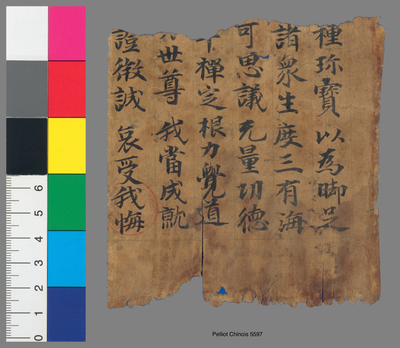 種珎寶以為脚足
諸衆生度三有海
可思議无量功德
禪定根力覺道
世尊我當成就
證徴誠哀受我悔
6
5
4
3
2
1
0
Pelliot Chinois 5597